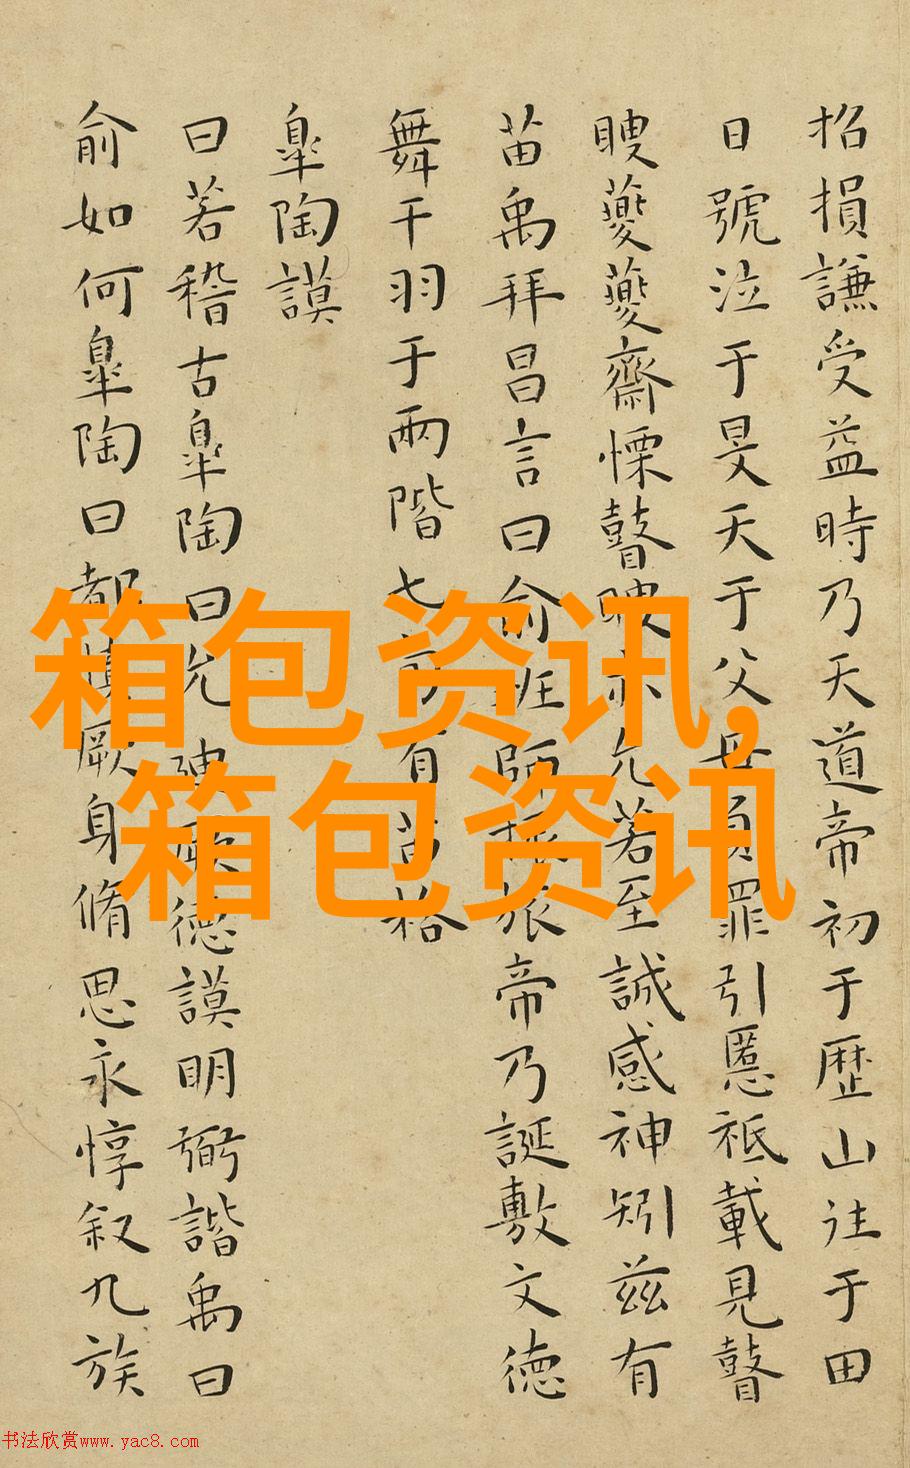 招損謙受益時乃天道帝初于歴山往于田
日號泣于旻天于父母負罪引慝祗載見瞽
瞍夔夔齋慄瞽瞍亦允若至誠感神矧兹有
苗禹拜昌言曰俞班師振旅帝乃誕敷文德
舞干羽于兩階七旬有苗格
臯陶謨
曰若稽古臯陶曰允迪厥德謨明弼諧禹曰
俞如何臯陶曰都慎厥身脩思永惇叙九族
箱包资讯,
箱包资讯
书法欣赏www.yac8.com